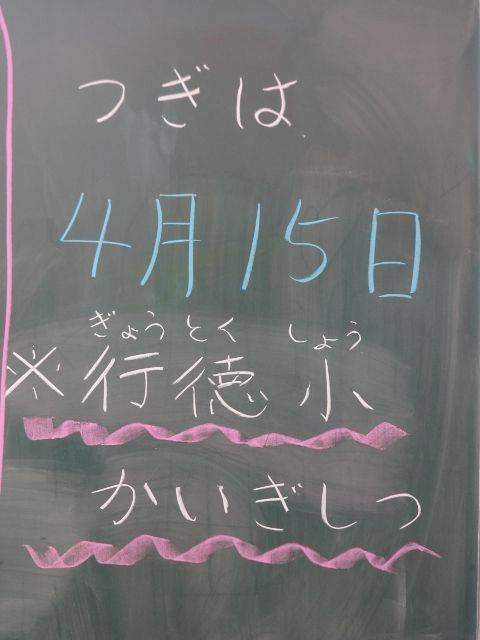 つぎは、
4月15日
ぎょうとく しょう
※行徳小
かいぎしつ